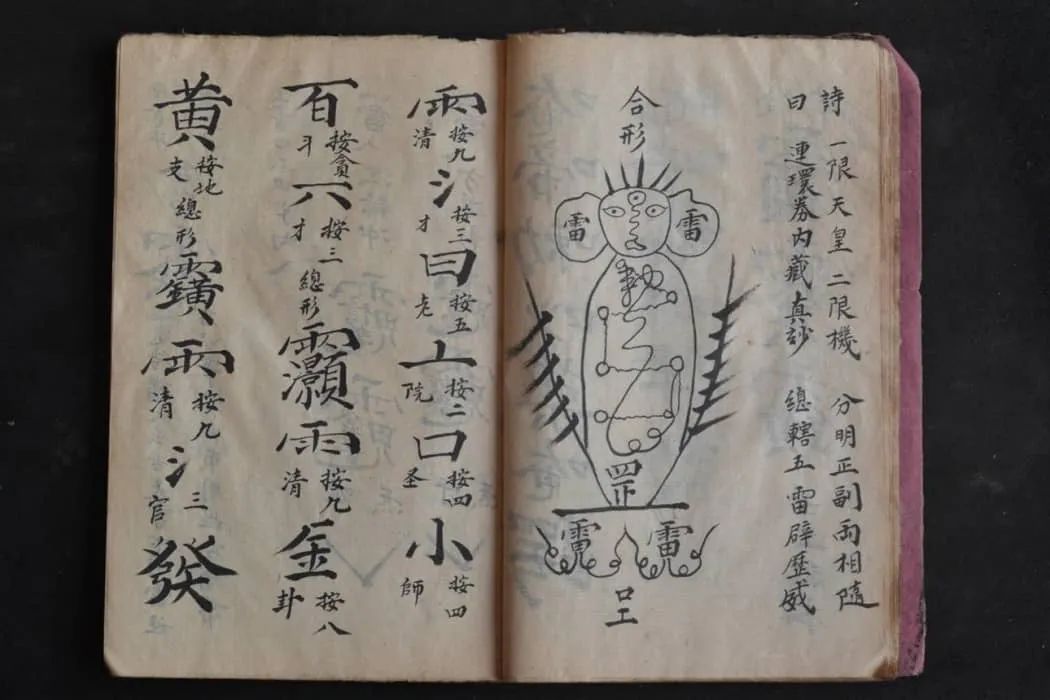 詩 一限天皇二限機 分明正副両相隨
曰 連環券内藏真 總轄五雷辟歷威
合形
雷 雷
罡
雷 雷
口工
雨按九清 氵按三才 曰按五老 亠按二院 口按四圣 小按四師
百按貪斗 六按三才 總形 雨按九清 金按八卦
黄按地支 總形 雨按九清 氵三官 發